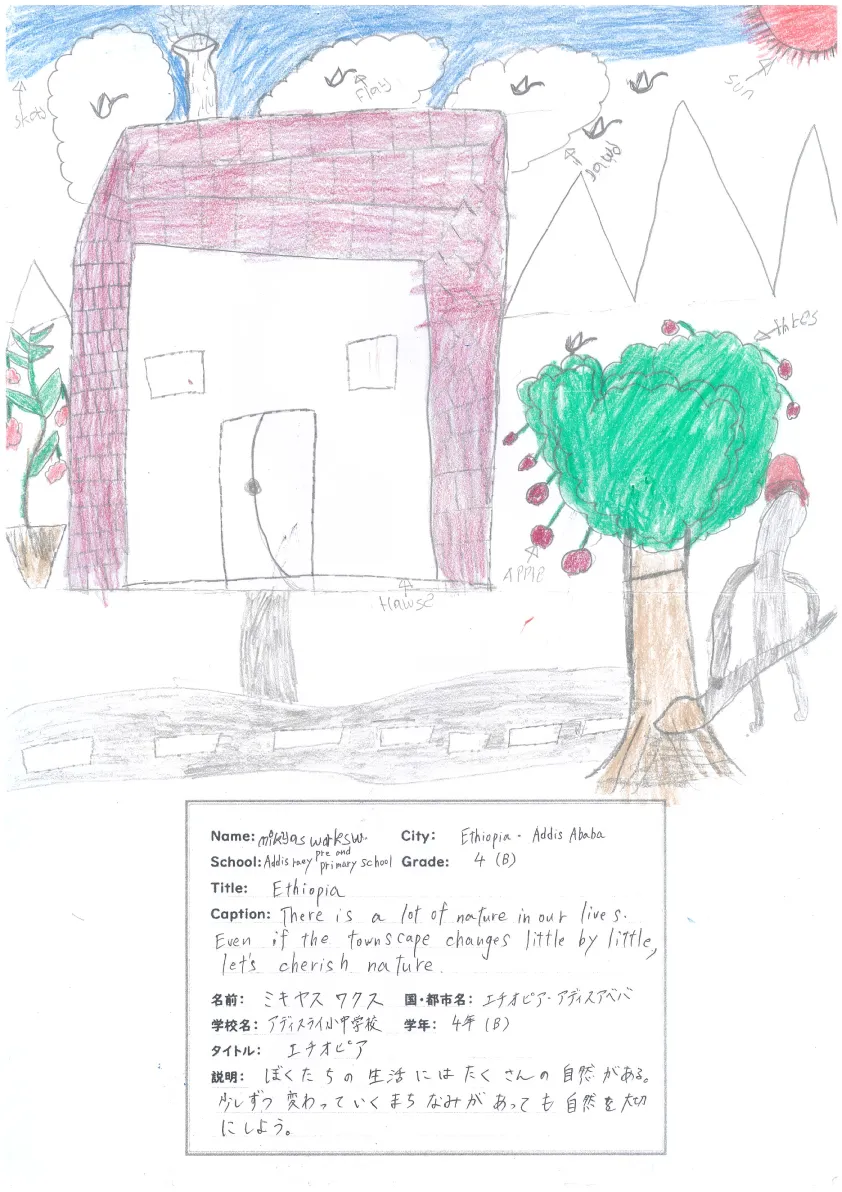 sun
flay
APPle
Hawse
Name: mikyas worksw. City: Ethiopia - Addis Ababa
School: Addis raey pre and primary school Grade: 4 (B)
Title: Ethiopia
Caption: There is a lot of nature in our lives.
Even if the townscape changes little by little,
let's cherish nature.
名前: ミキヤス ワクス 国・都市名: エチオピア・アディスアベバ
学校名: アディスライ小中学校 学年: 4年 (B)
タイトル: エチオピア
説明: ぼくたちの生活にはたくさんの自然がある。
少しずつ変わっていくまちなみがあっても自然を大切
にしよう。